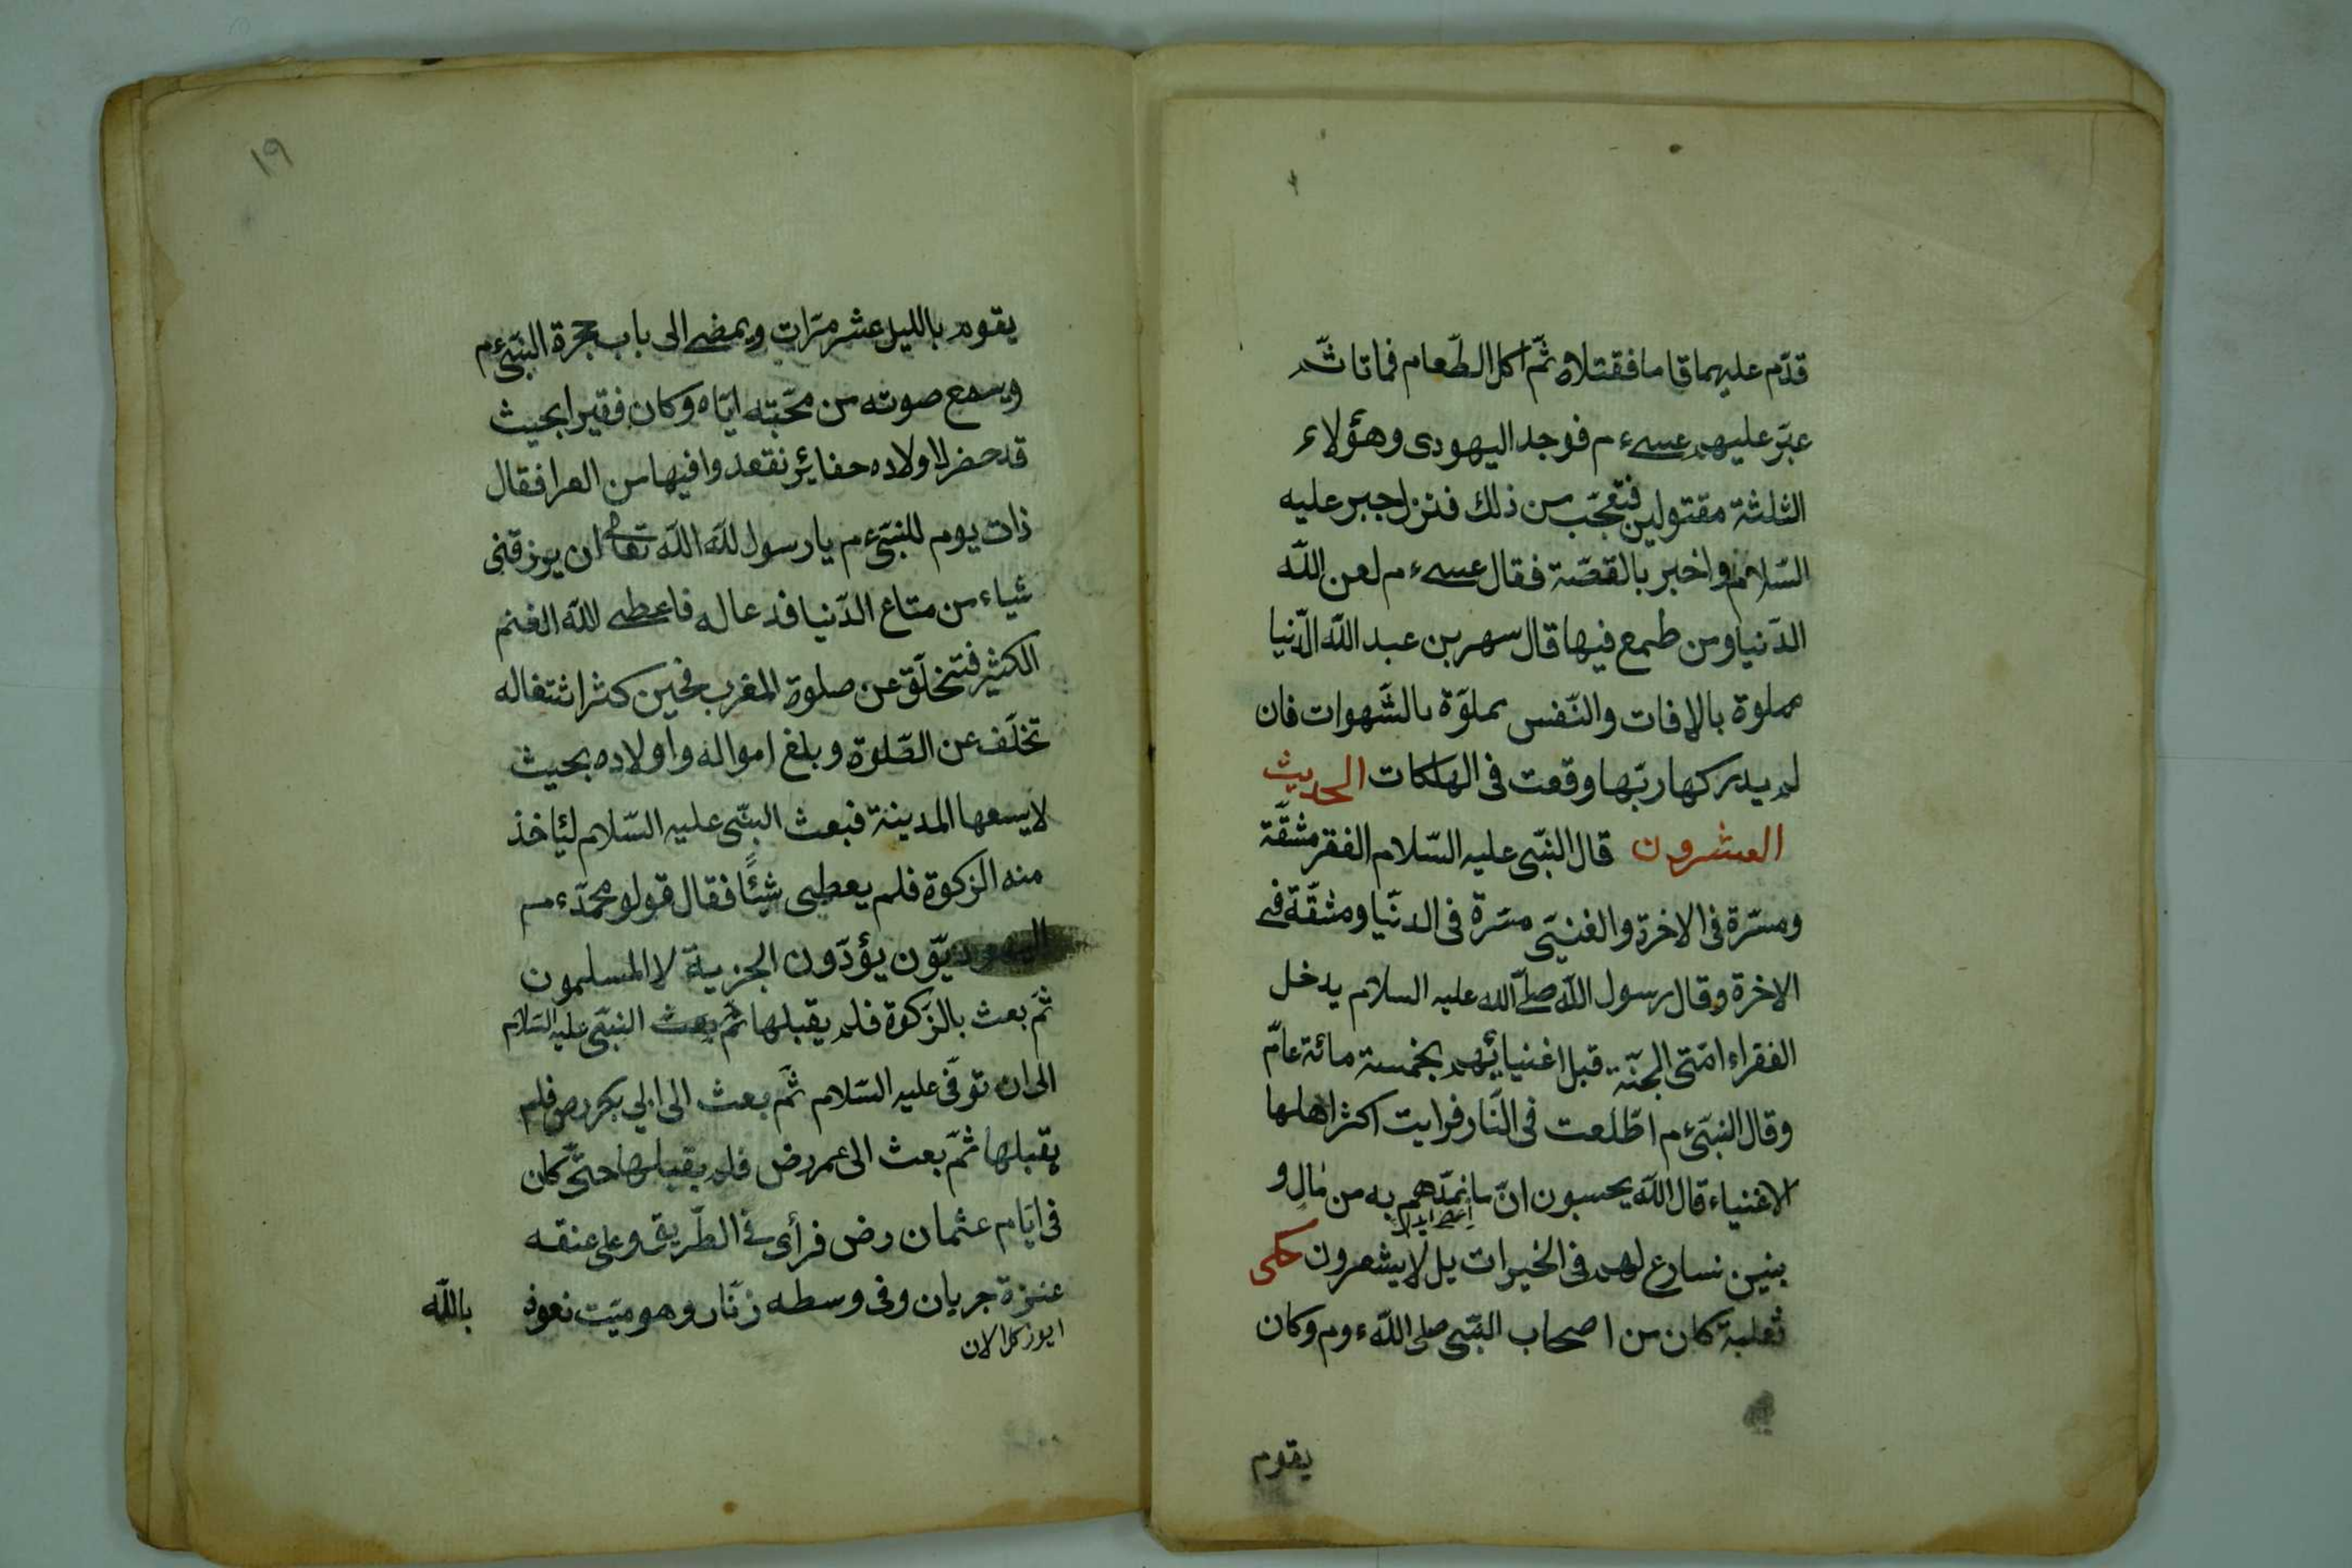 قدّم عليهما قاما فقتلاه ثمّ اكل الطّعام فماتا ثمّ
عبّر عليهم عسىءم فوجد اليهودى وهؤلاء
الثلثة مقتولين فتعجّب من ذلك فنزل جبر عليه
السّلام واخبر بالقصّة فقال عسىءم لعن اللّه
الدّنيا ومن طمع فيها قال سهر بن عبد اللّه الدّنيا
مملوة بالافات والنّفس مملوّة بالشّهوات فان
لم يدركها ربّها وقعت فى الهلكات الحديث
العشرون قال النّبى عليه السّلام الفقر مشقّة
ومسرّة فى الاخرة والغنىّ مسّرة فى الدنّيا ومشقّة فى
الاخرة وقال رسول اللّه صلّى اللّه عليه السلام يدخل
الفقراء امّتى الجنّة قبل اغنيائهم بخمسة مائة عامّ
وقال النبىّءم اطّلعت فى النّار فرايت اكثر اهلها
الاغنياء قال اللّه يحسبون انّ ما نمدّهم به من مال و
بنين نسارع لهم فى الخيرات بل لا يشعرون حكى
ثعلبة كان من اصحاب النّبى صلى اللّه ءوم وكان
يقوم
١٩
يقوم بالليل عشر مرّات ويمضى الى باب حجرة النبّىءم
ويسمع صوته من محبّته ايّاه وكان فقيرا بحيث
قد حضر لاولاده حفايئر نقعدوا فيها من العرا فقال
ذات يوم للنبىّءم يا رسول للّه اللّه تعالى ان يوزقنى
شياء من متاع الدّنيا فدعا له فاعطى للّه الغنم
الكثير فتخلّق عن صلوة المغرب فحين كثر اشتغاله
تخلّف عن الصّلوة وبلغ امواله واولاده بحيث
لا يسعها المدينة فبعث النبّى عليه السّلام ليئاخذ
منه الزكوة فلم يعطى شيئًا فقال قولو محمّدءم
اليهوديّون يؤدّون الجزية لا المسلمون
ثمّ بعث بالزّكوة فلم يقبلها ثمّ بعث النبّى عليه السّلام
الى ان توفّى عليه السّلام ثمّ بعث الى ابى بكر رض فلم
يقبلها ثمّ بعث الى عمر رض فلم يقبلها حتّى كان
فى ايّام عثمان رض فرأى فى الطّريق وعلى عنقه
عنزة جربان وفى وسطه زنّار وهو ميّت نعوذ باللّه